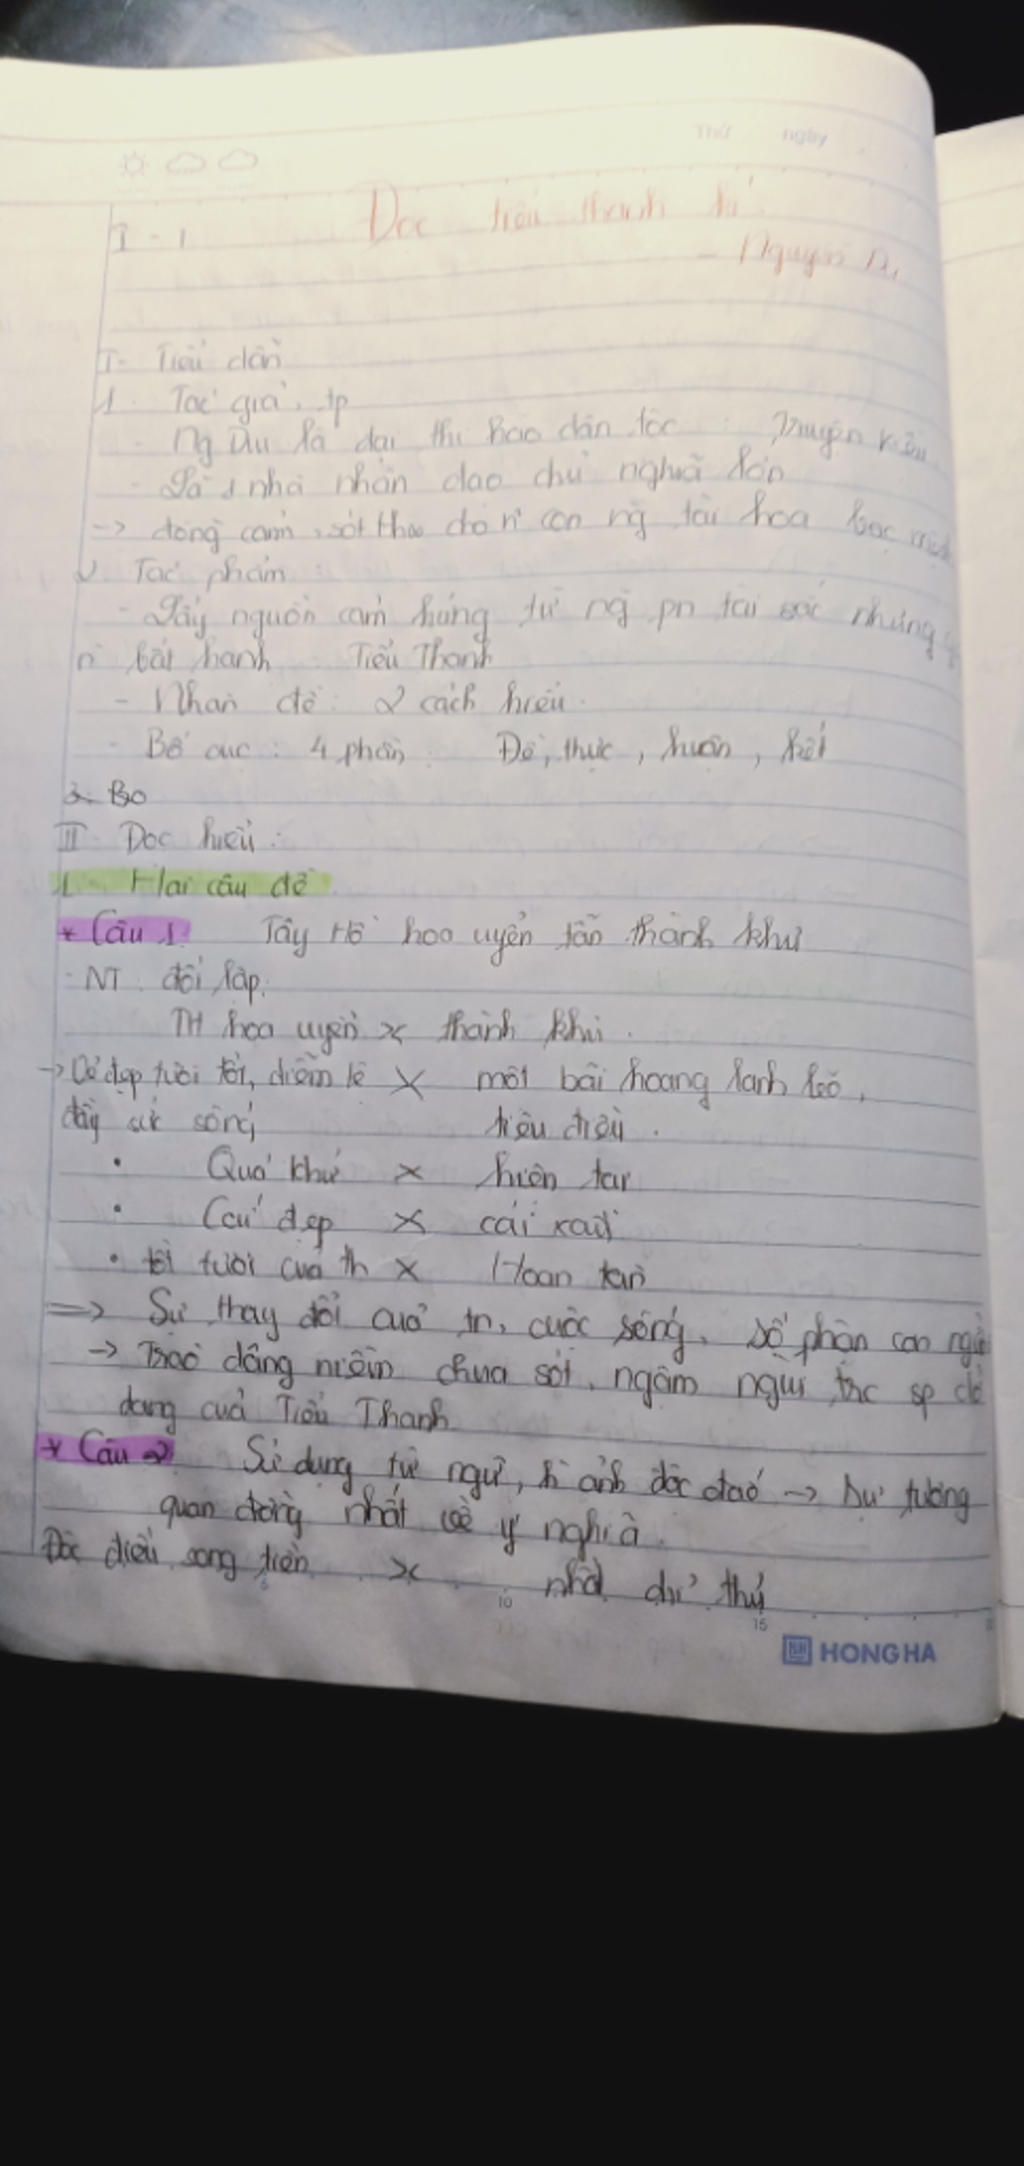 Thứ ngày
I - 1 Đọc tiểu thanh kí
- Nguyễn Du
I- Tiểu dẫn
1. Tác giả, tp
- Ng Du là đại thi hào dân tộc : Truyện Kiều
- Là 1 nhà nhân đạo chủ nghĩa lớn
-> đồng cảm, sót thao cho n~ con ng tài hoa bạc mệnh
2. Tác phẩm :
- Lấy nguồn cảm hứng từ ng pn tài sắc nhưng
n~ bất hạnh Tiểu Thanh
- Nhan đề: 2 cách hiểu.
- Bố cục: 4 phần Đề, thực, luận, kết
3. Bo
II. Đọc hiểu :
1. Hai câu đề
* Câu 1: Tây Hồ hoa uyển tẫn thành khư
- NT: đối lập.
TH hoa uyển x thành khư.
-> Cẻ đẹp tươi tốt, diễm lệ X một bãi hoang lạnh lẽo,
đầy sức sống tiêu điều.
• Quá khứ x hiện tại
• Cái đẹp x cái xấu
• tốt tươi của th x Hoan tàn
=> Sự thay đổi của tn, cuộc sống, số phận con người
-> Trào dâng niềm chua sót, ngậm ngùi trc sp dở
dang của Tiểu Thanh
* Câu 2: Sử dụng từ ngữ, h ảnh độc đáo -> sự tương
quan đồng nhất về ý nghĩa.
Độc điếu song tiền x nhất chỉ thư
10
15
HONG HA